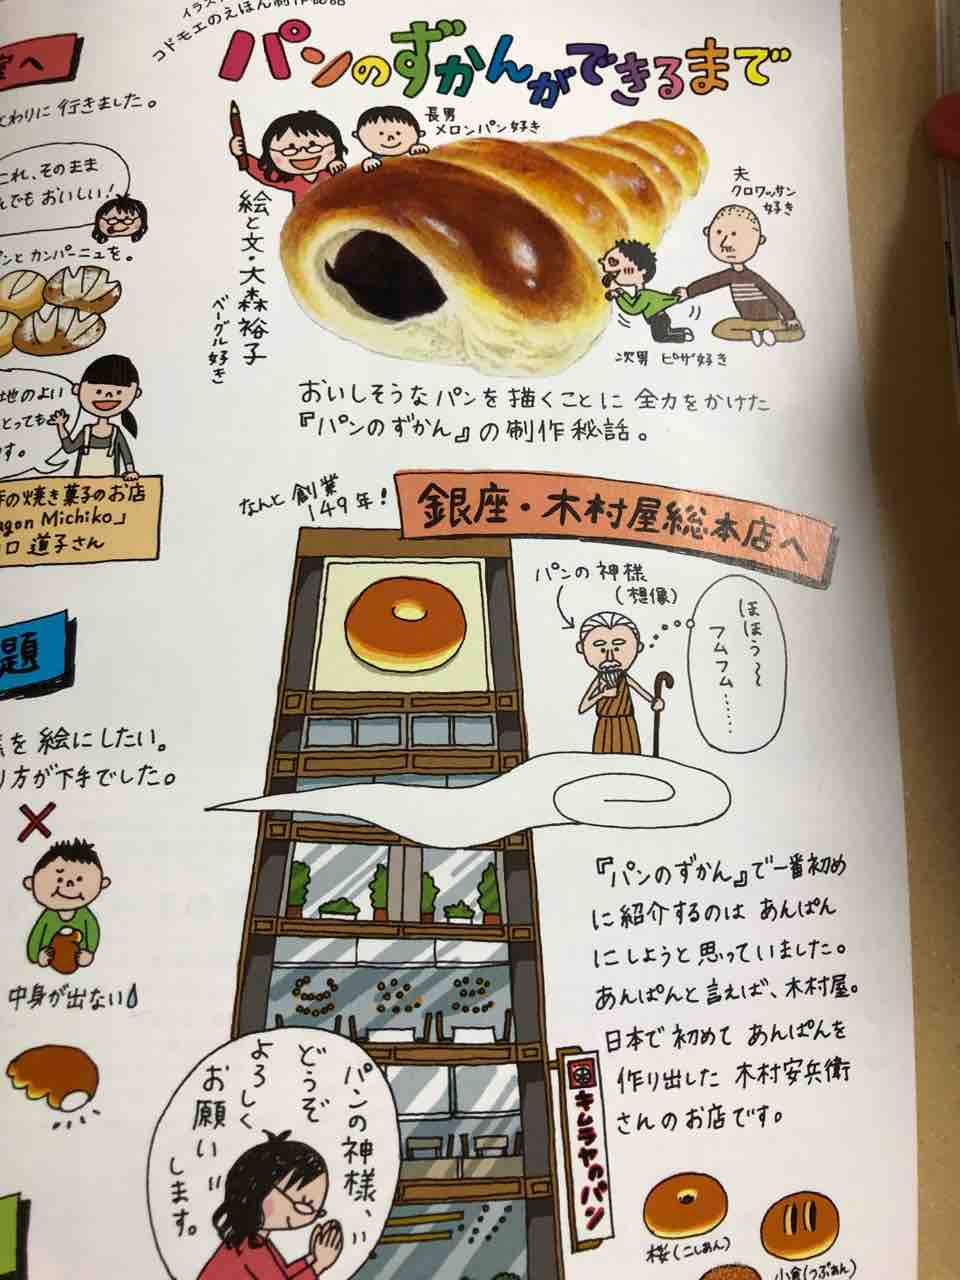 コドモエのえほん制作秘話
パンのずかんができるまで
長男
メロンパン好き
夫
クロワッサン
好き
絵と文・大森裕子
ベーグル好き
次男 ピザ好き
おいしそうなパンを描くことに全力をかけた
『パンのずかん』の制作秘話。
なんと創業
149年!
銀座・木村屋総本店へ
パンの神様
(想像)
ほほう〜
フムフム……
『パンのずかん』で一番初め
に紹介するのはあんぱん
にしようと思っていました。
あんぱんと言えば、木村屋。
日本で初めてあんぱんを
作り出した木村安兵衛
さんのお店です。
キムラヤのパン
パンの神様、
どうぞ
よろしく
お願い
します。
桜(こしあん)
小倉(つぶあん)
へ
わりに行きました。
これ、そのまま
でもおいしい!
とカンパーニュを。
地のよい
とっても
す。
の焼き菓子のお店
agon Michiko」
口 道子さん
題
を絵にしたい。
り方が下手でした。
中身が出ない